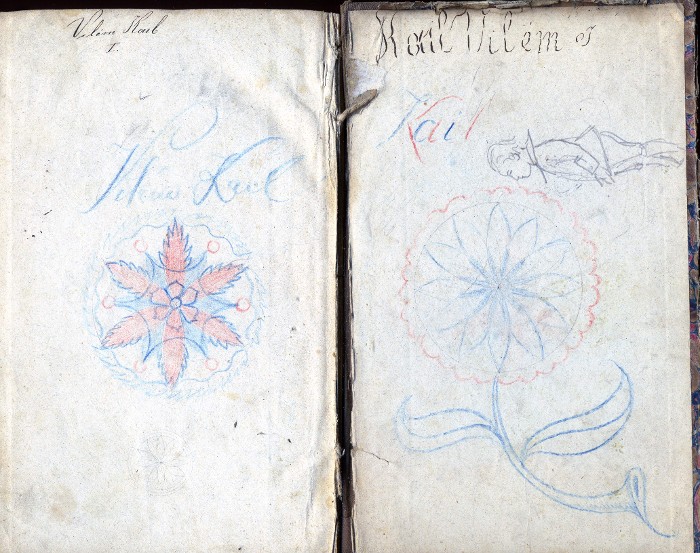 Vilém Kail
I.
Vilém Kail
Kail Vilém I
Kail